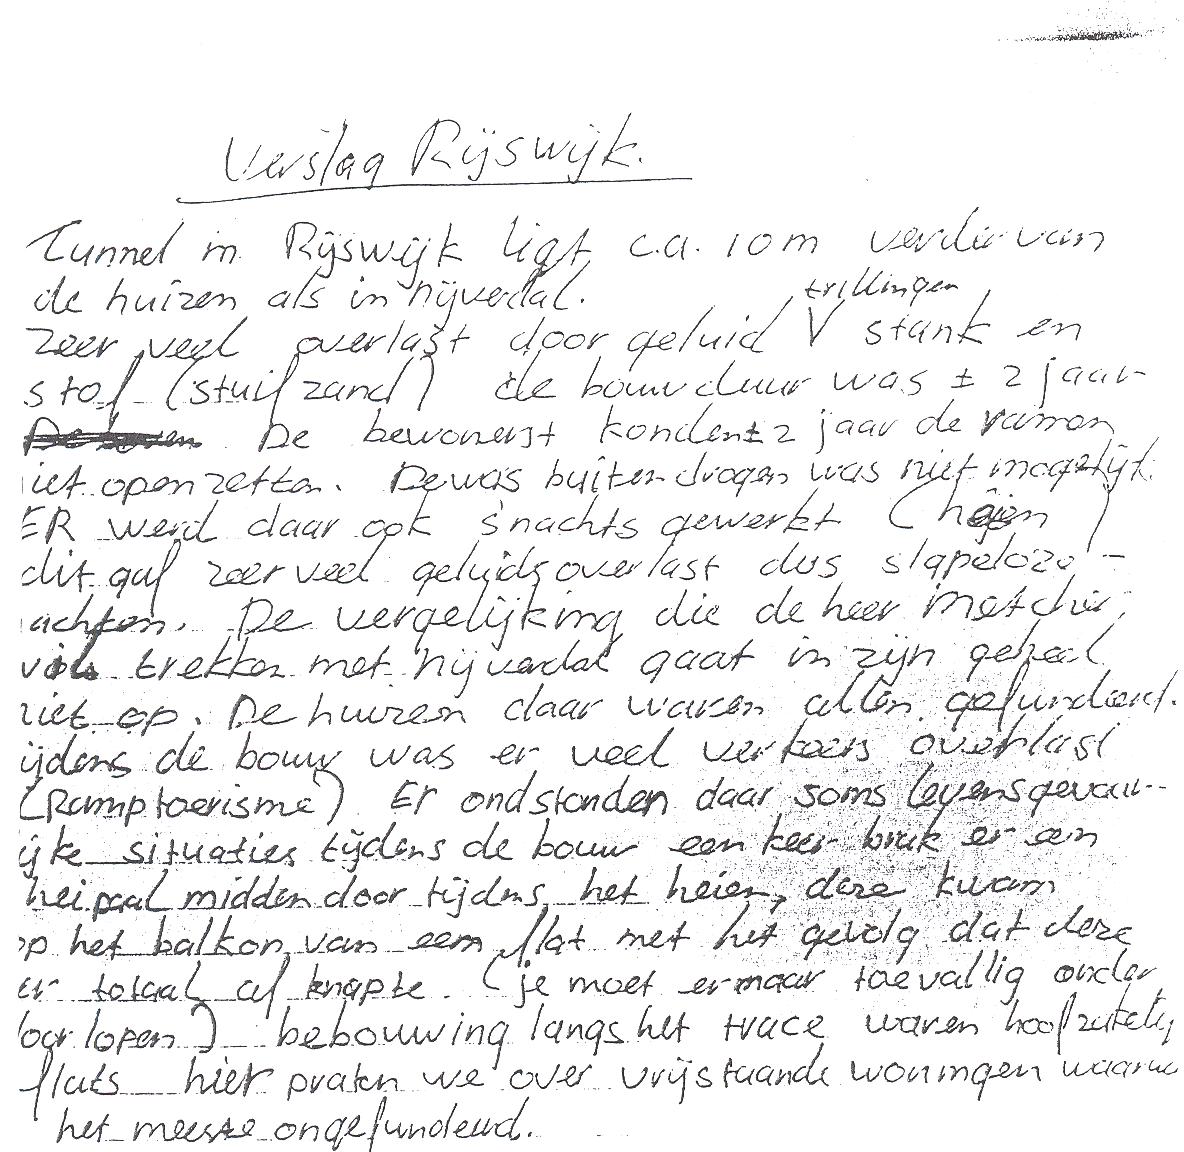 Verslag Rijswijk.
Tunnel in Rijswijk ligt c.a. 10 m verder van
de huizen als in Nijverdal.
trillingen
zeer veel overlast door geluid V stank en
stof (stuifzand) de bouwduur was ± 2 jaar
De bewoners konden ± 2 jaar de ramen
iet open zetten. De was buiten drogen was niet mogelijk.
ER werd daar ook s'nachts gewerkt (heien)
dit gaf zeer veel geluidsoverlast dus slapeloze -
achten. De vergelijking die de heer
trekken met Nijverdal gaat in zijn geheel
niet op. De huizen daar waren allen gefundeerd.
ijdens de bouw was er veel verkeers overlast
(Ramptoerisme) Er ondstonden daar soms levensgevaar-
ijke situaties tijdens de bouw een keer brak er een
heipaal midden door tijdens het heien, deze kwam
op het balkon van een flat met het gevolg dat deze
er totaal af knapte. (je moet er maar toevallig onder
oor lopen) bebouwing langs het trace waren hoofzakelij
flats hier praten we over vrijstaande woningen waarva
het meeste ongefundeerd.